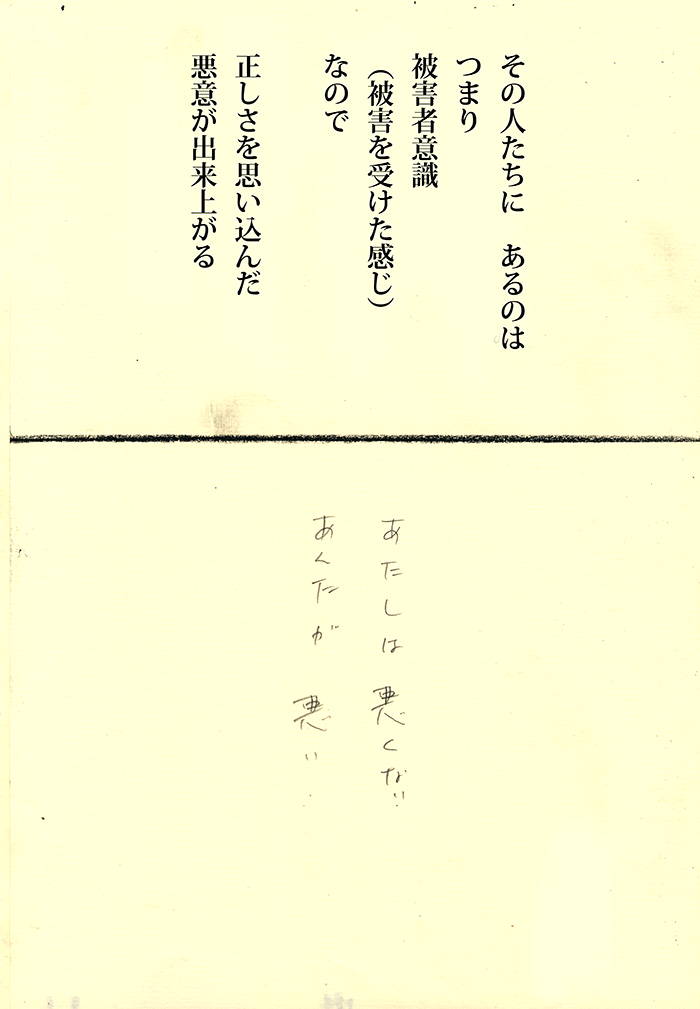 その人たちに　あるのは
つまり
被害者意識
（被害を受けた感じ）
なので
正しさを思い込んだ
悪意が出来上がる
あたしは 悪くない
あんたが 悪い